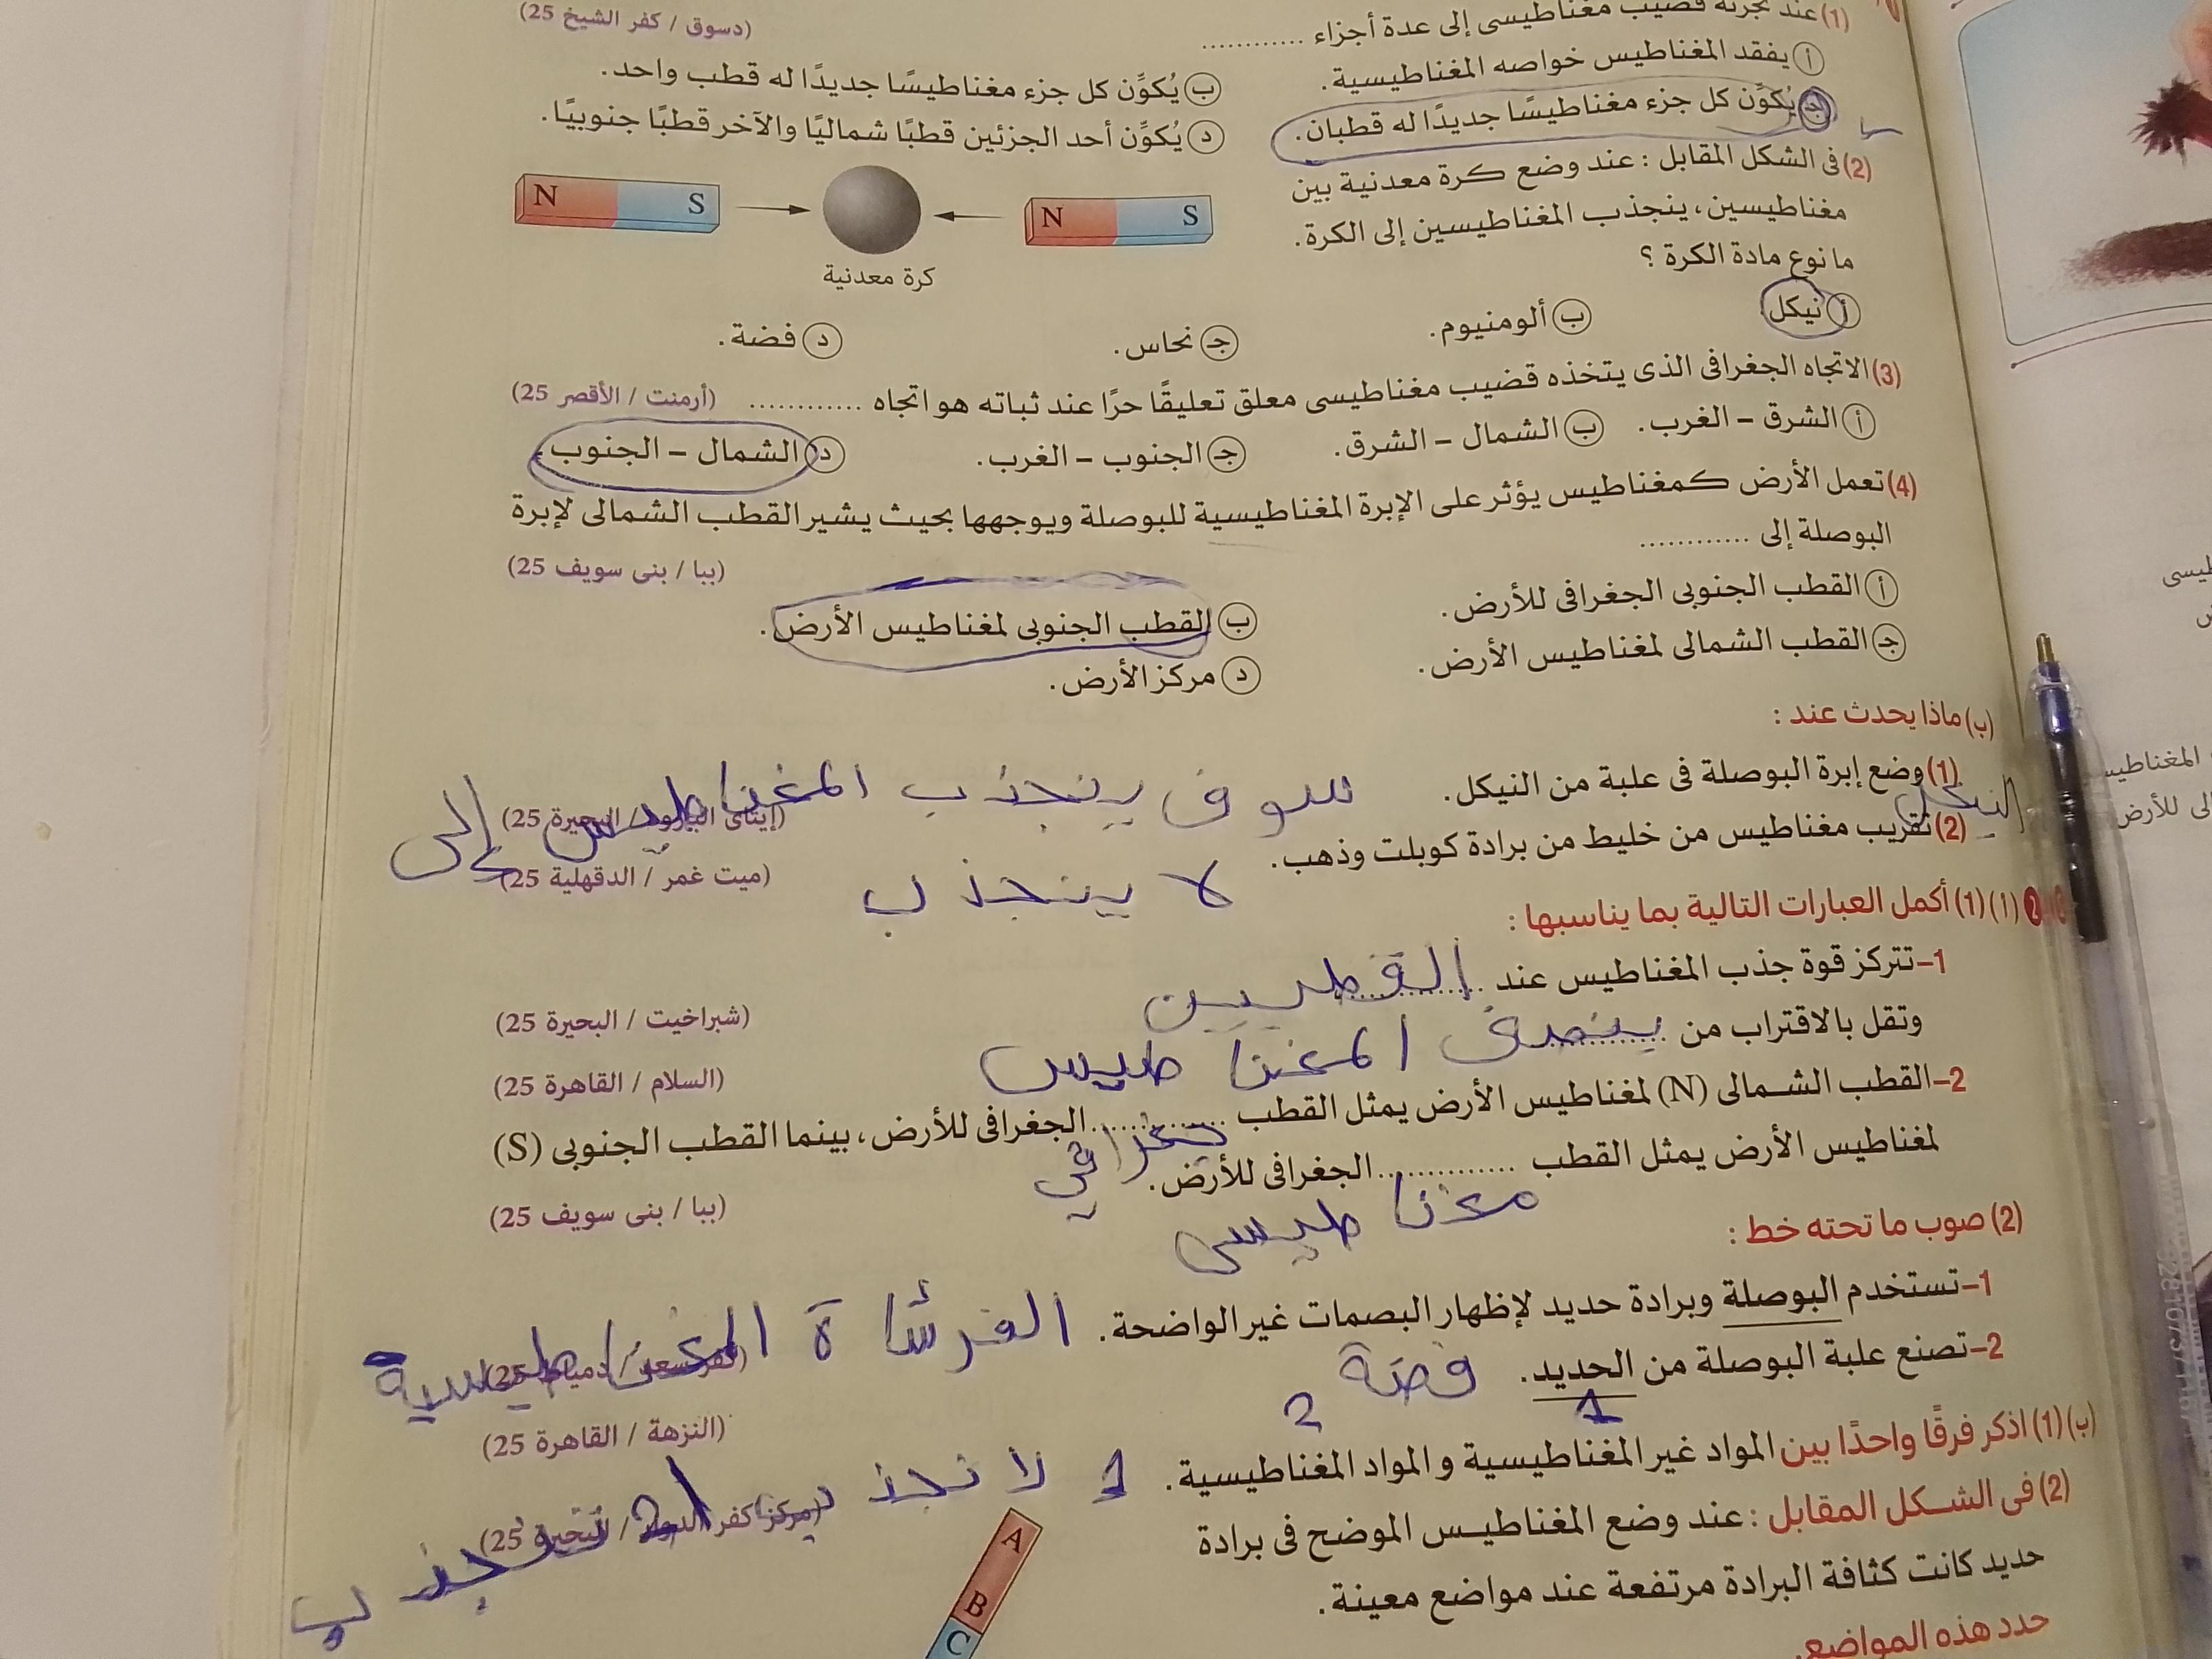 (1) عند تجزئة قضيب مغناطيسى إلى عدة أجزاء ............
(دسوق / كفر الشيخ 25)
أ يفقد المغناطيس خواصه المغناطيسية.
ب يُكوِّن كل جزء مغناطيسًا جديدًا له قطب واحد.
ج يُكوِّن كل جزء مغناطيسًا جديدًا له قطبان.
د يُكوِّن أحد الجزئين قطبًا شماليًا والآخر قطبًا جنوبيًا.
(2) فى الشكل المقابل : عند وضع كرة معدنية بين
مغناطيسين، ينجذب المغناطيسين إلى الكرة.
ما نوع مادة الكرة ؟
N S
N S
كرة معدنية
أ نيكل
ب ألومنيوم.
ج نحاس.
د فضة.
(3) الاتجاه الجغرافى الذى يتخذه قضيب مغناطيسى معلق تعليقًا حرًا عند ثباته هو اتجاه ............
(أرمنت / الأقصر 25)
أ الشرق – الغرب.
ب الشمال – الشرق.
ج الجنوب – الغرب.
د الشمال – الجنوب.
(4) تعمل الأرض كمغناطيس يؤثر على الإبرة المغناطيسية للبوصلة ويوجهها بحيث يشير القطب الشمالى لإبرة
البوصلة إلى ............
(ببا / بنى سويف 25)
أ القطب الجنوبى الجغرافى للأرض.
ب القطب الجنوبى لمغناطيس الأرض.
ج القطب الشمالى لمغناطيس الأرض.
د مركز الأرض.
(ب) ماذا يحدث عند :
(1) وضع إبرة البوصلة فى علبة من النيكل.
سوف ينجذب المغناطيس إلى
النيكل
(إيتاى البارود / البحيرة 25)
(2) تقريب مغناطيس من خليط من برادة كوبلت وذهب.
(ميت غمر / الدقهلية 25)
لا ينجذب
2 (أ) (1) أكمل العبارات التالية بما يناسبها :
1– تتركز قوة جذب المغناطيس عند ............
القطبين
(شبراخيت / البحيرة 25)
وتقل بالاقتراب من ............
المغناطيس
(السلام / القاهرة 25)
2– القطب الشمالى (N) لمغناطيس الأرض يمثل القطب ............ الجغرافى للأرض، بينما القطب الجنوبى (S)
لمغناطيس الأرض يمثل القطب ............ الجغرافى للأرض.
(ببا / بنى سويف 25)
مغناطيسى
(2) صوب ما تحته خط :
1– تستخدم البوصلة وبرادة حديد لإظهار البصمات غير الواضحة.
الفرشاة المغناطيسية
2– تصنع علبة البوصلة من الحديد.
فضة
(النزهة / القاهرة 25)
1
2
(ب) (1) اذكر فرقًا واحدًا بين المواد غير المغناطيسية و المواد المغناطيسية.
1 لا تجذب
2 تنجذب
(مركز كفر الدوار / البحيرة 25)
(2) فى الشكل المقابل : عند وضع المغناطيس الموضح فى برادة
حديد كانت كثافة البرادة مرتفعة عند مواضع معينة.
حدد هذه المواضع.
A
B
C
طيسى
المغناطيس
لى للأرض